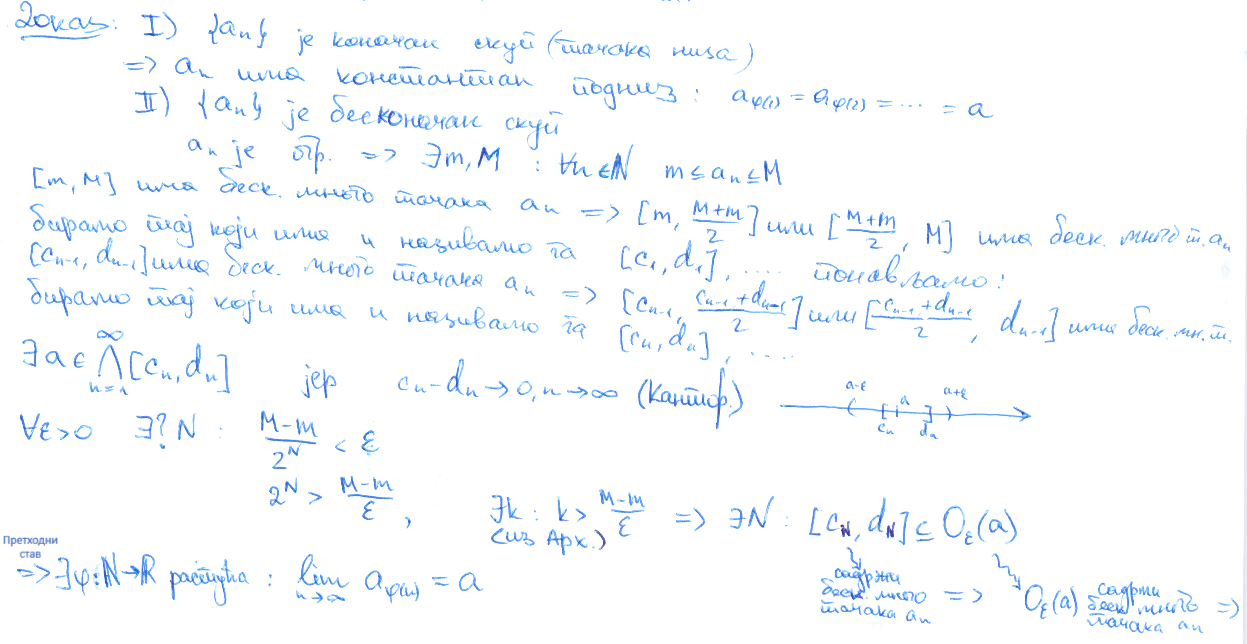 Доказ: I) {aₙ} је коначан скуп (тачака низа)
=> aₙ има константан подниз: a_φ(1) = a_φ(2) = ... = a
II) {aₙ} је бесконачан скуп
aₙ је огр. => ∃m, M : ∀n∈ℕ m ≤ aₙ ≤ M
[m, M] има беск. много тачака aₙ => [m, (M+m)/2] или [(M+m)/2, M] има беск. много т. aₙ
бирамо тај који има и називамо га [c₁, d₁], .... понављамо:
[cₙ₋₁, dₙ₋₁] има беск. много тачака aₙ => [cₙ₋₁, (cₙ₋₁+dₙ₋₁)/2] или [(cₙ₋₁+dₙ₋₁)/2, dₙ₋₁] има беск. мн. т.
бирамо тај који има и називамо га [cₙ, dₙ], ....
∃a ∈ ⋂_{n=1}^{∞} [cₙ, dₙ] јер cₙ-dₙ → 0, n → ∞ (Кантор.) a-ε a a+ε cₙ dₙ
∀ε>0 ∃? N : (M-m)/2^N < ε
2^N > (M-m)/ε, ∃k : k > (M-m)/ε => ∃N : [c_N, d_N] ⊆ O_ε(a)
(из Арх.)
Претходни
став
=> ∃φ: ℕ→ℝ растућа : lim_{n→∞} a_φ(n) = a
садржи
беск. много
тачака aₙ
=> O_ε(a) садржи
беск много
тачака aₙ =>